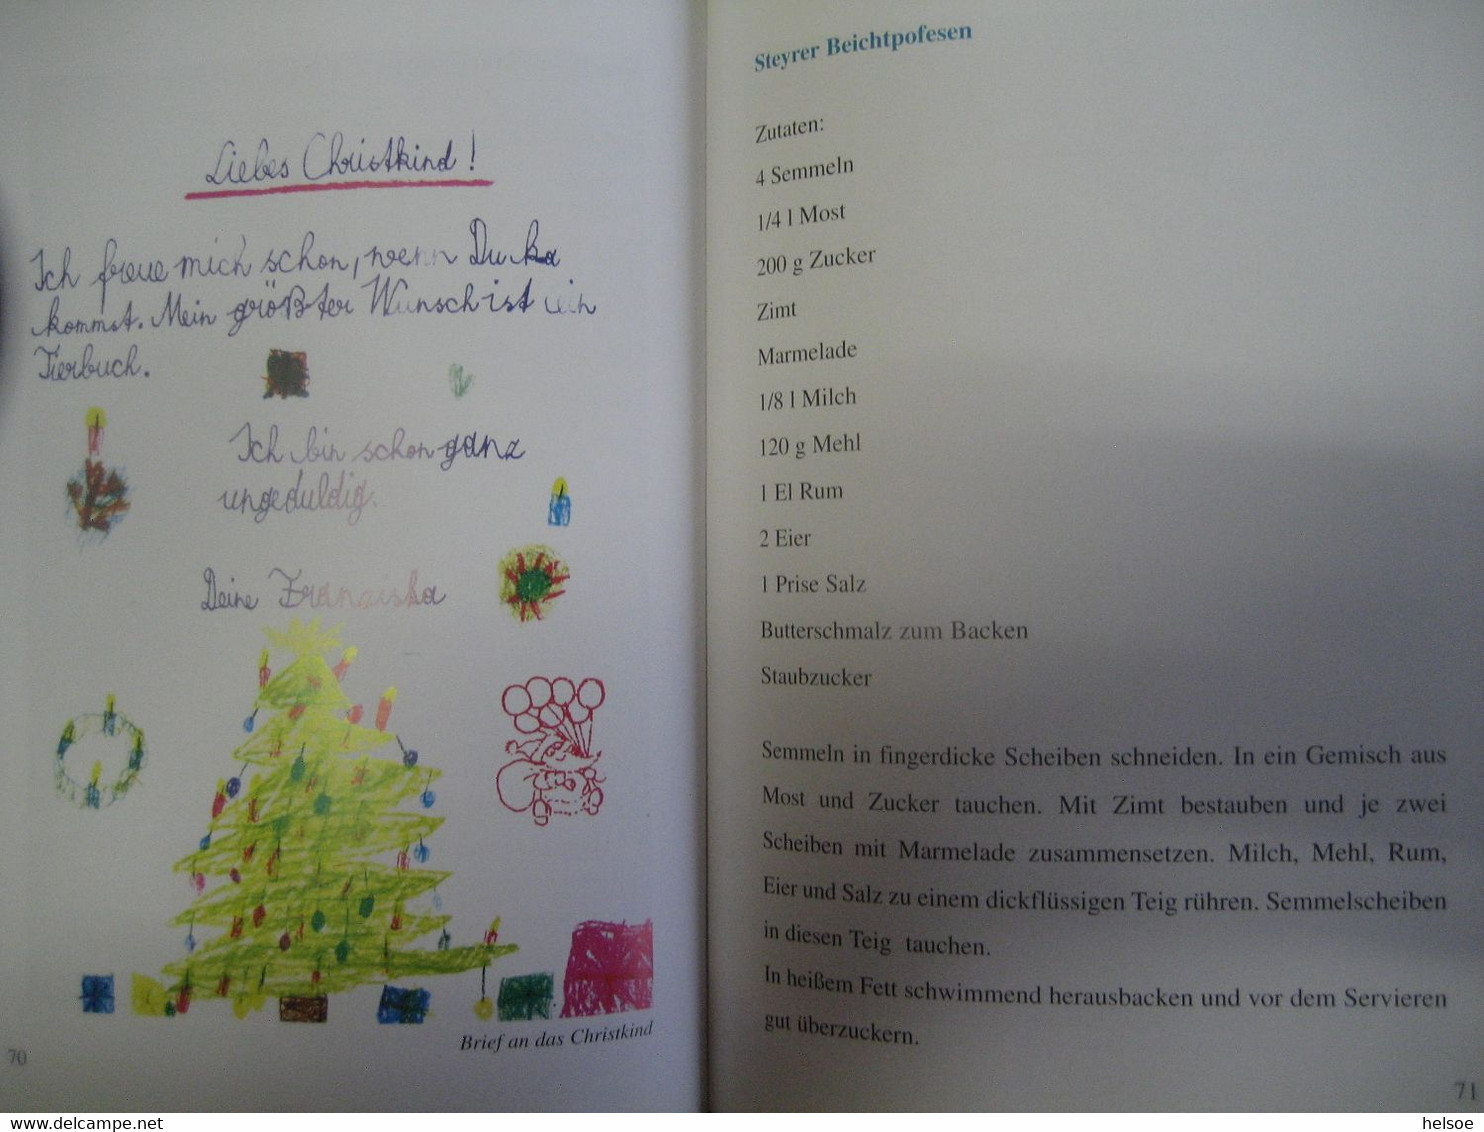 Liebes Christkind!
Ich freue mich schon, wenn Du ka
kommst. Mein größter Wunsch ist ein
Tierbuch.
Ich bin schon ganz
ungeduldig.
Deine Franziska
Brief an das Christkind
70
Steyrer Beichtpofesen
Zutaten:
4 Semmeln
1/4 l Most
200 g Zucker
Zimt
Marmelade
1/8 l Milch
120 g Mehl
1 El Rum
2 Eier
1 Prise Salz
Butterschmalz zum Backen
Staubzucker
Semmeln in fingerdicke Scheiben schneiden. In ein Gemisch aus
Most und Zucker tauchen. Mit Zimt bestauben und je zwei
Scheiben mit Marmelade zusammensetzen. Milch, Mehl, Rum,
Eier und Salz zu einem dickflüssigen Teig rühren. Semmelscheiben
in diesen Teig tauchen.
In heißem Fett schwimmend herausbacken und vor dem Servieren
gut überzuckern.
71
www.delcampe.net
helsoe